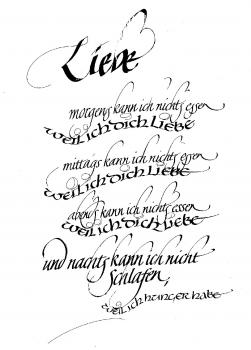 Liebe
morgens kann ich nichts essen
weil ich dich liebe
mittags kann ich nichts essen
weil ich dich liebe
abends kann ich nichts essen
weil ich dich liebe
und nachts kann ich nicht
schlafen,
weil ich hunger habe